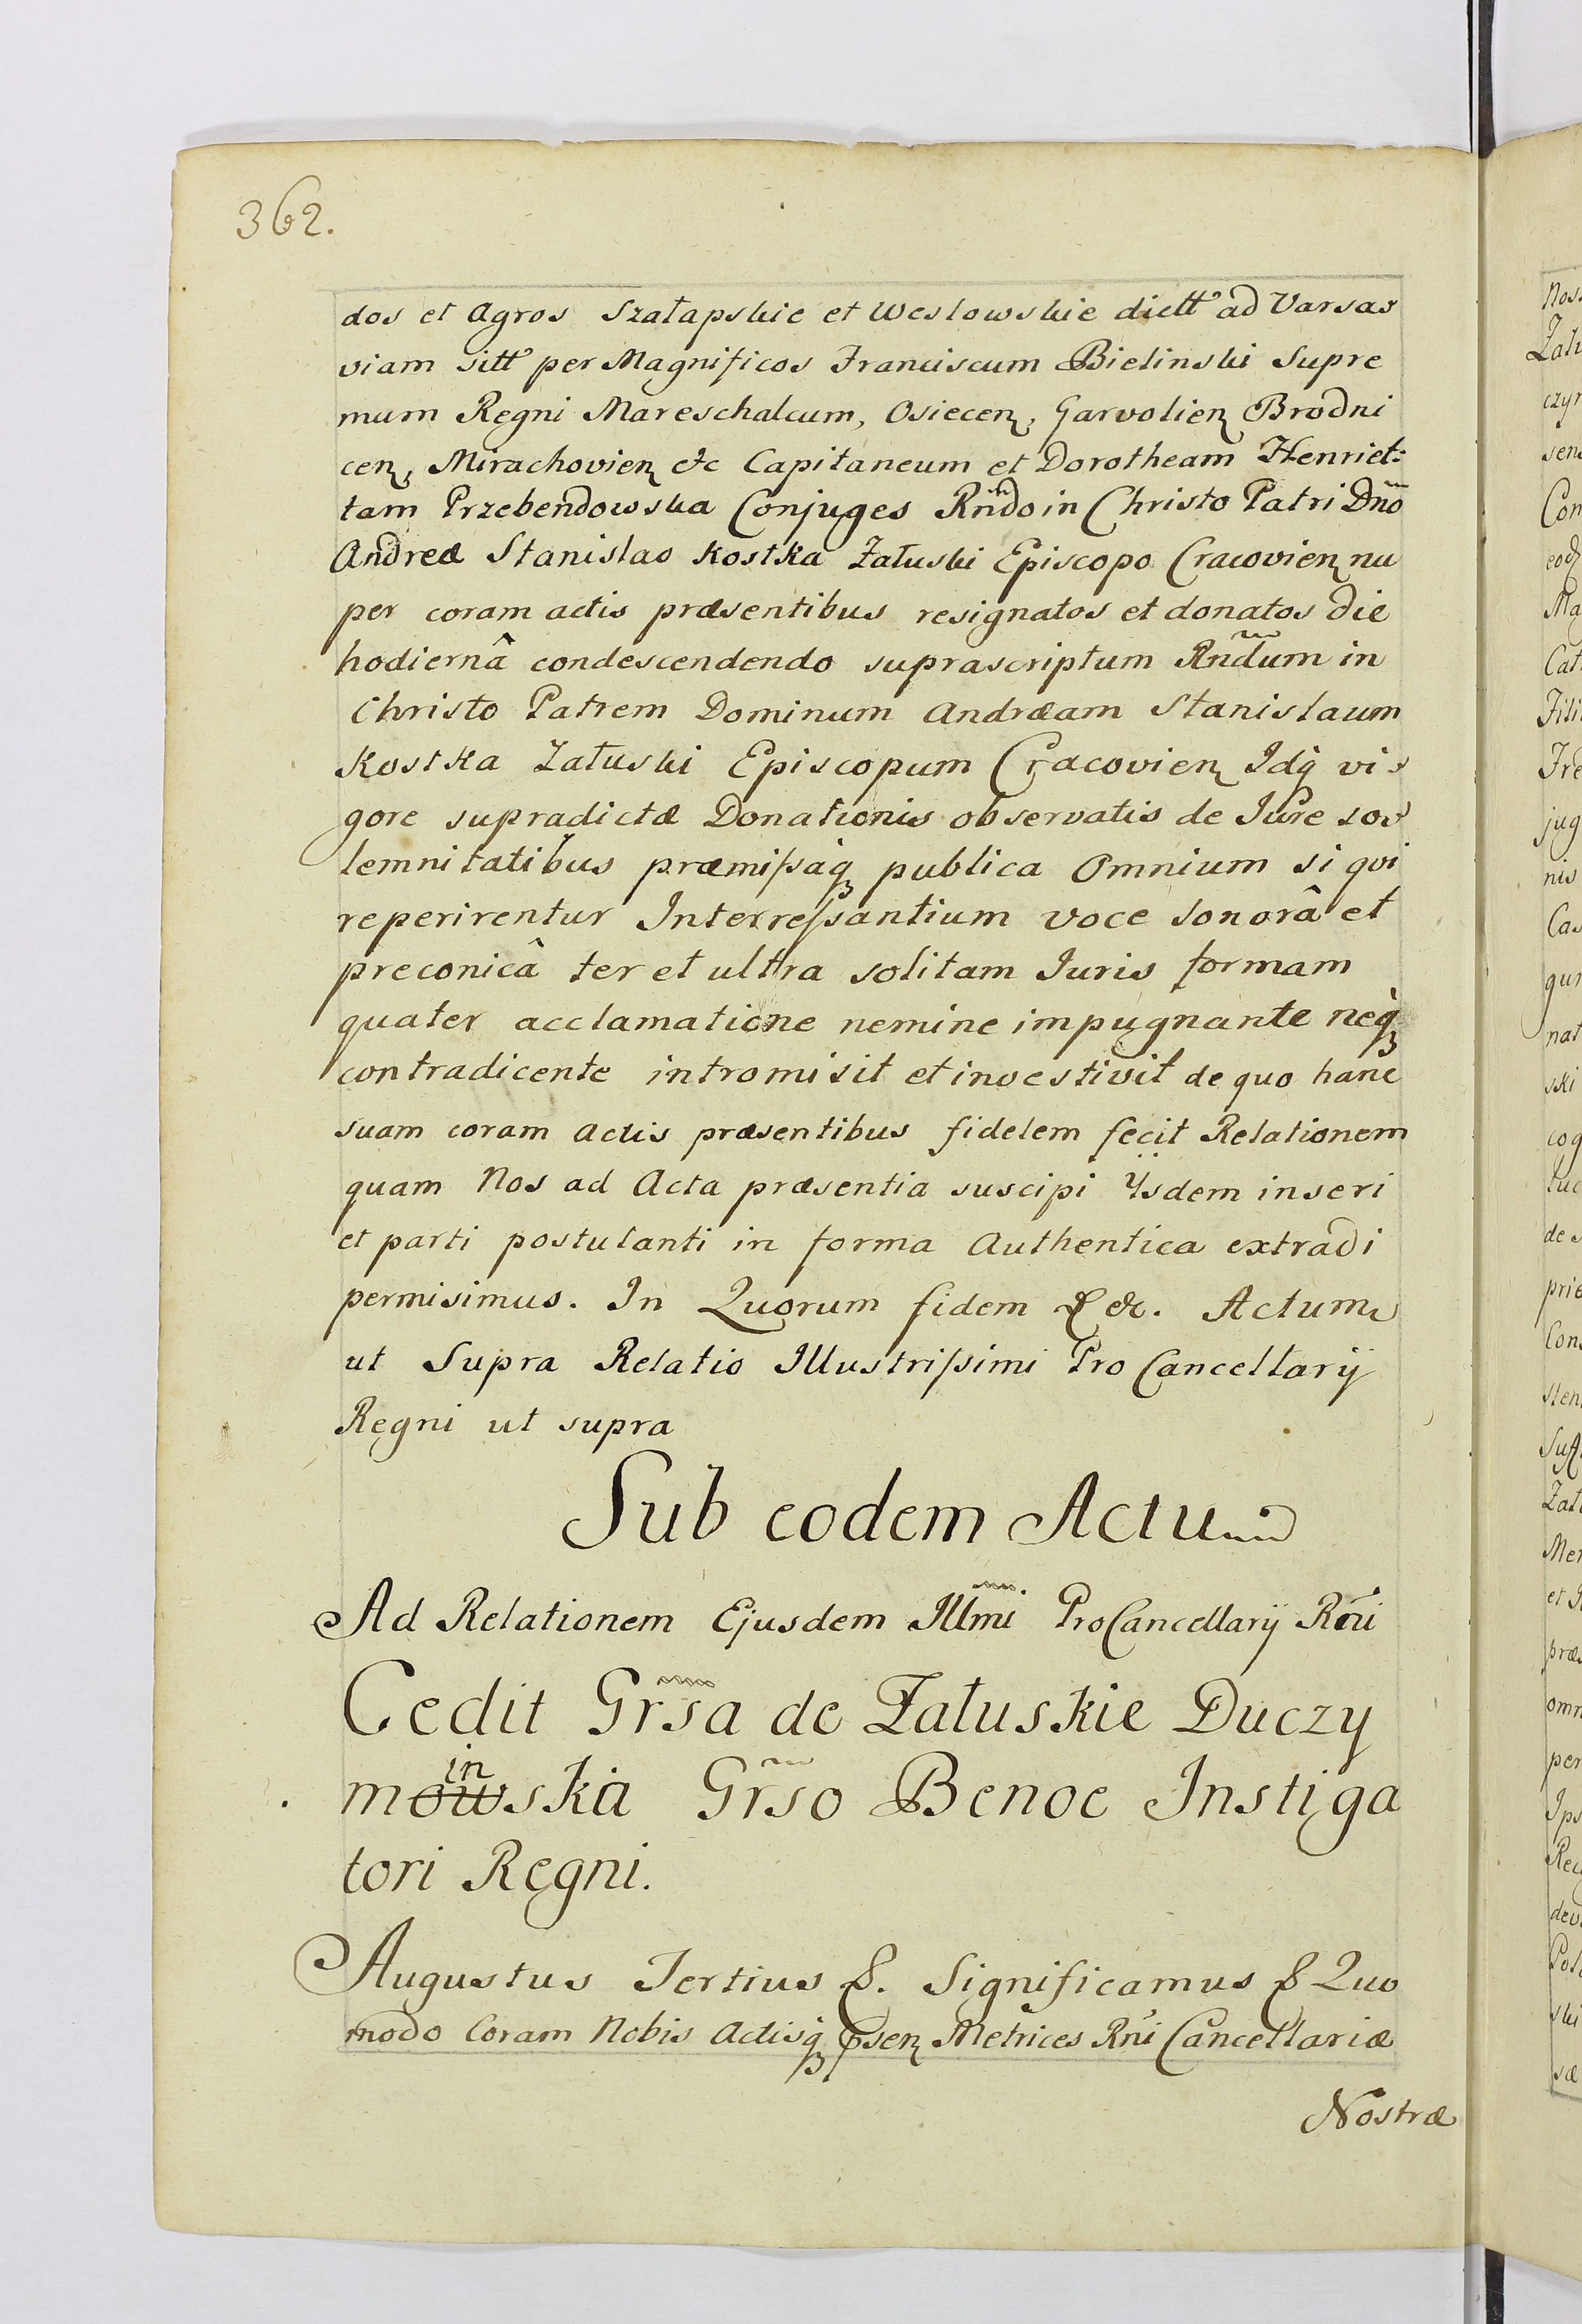 362.
dos et Agros Szałapskie et Wesłowskie dictt° ad Varsa-
viam sitt° per Magnificos Franciscum Bielinski Supre
mum Regni Mareschalcum, Osiecen, Garvolien Brodni
cen, Mirachovien etc Capitaneum et Dorotheam Henriet:
tam Przebendowska Conjuges Rndo in Christo Patri Dño
Andreæ Stanislao Kostka Załuski Episcopo Cracovien nu
per coram actis præsentibus resignatos et donatos die
hodiernâ condescendendo suprascriptum Rndum in
Christo Patrem Dominum Andræam Stanislaum
Kostka Załuski Episcopum Cracovien Idq vi-
gore supradictæ Donationis observatis de Iure so-
lemnitatibus præmissaq publica Omnium si qui
reperirentur Interressantium voce sonorâ et
preconicâ ter et ultra solitam Iuris formam
quater acclamatione nemine impugnante neq
contradicente intromisit et investivit de quo hanc
suam coram actis præsentibus fidelem fecit Relationem
quam Nos ad Acta præsentia suscipi Ysdem inseri
et parti postulanti in forma Authentica extradi
permisimus. In Quorum fidem & etc. Actum
ut Supra Relatio Illustrissimi Pro Cancellarij
Regni ut supra
Sub eodem Actu
Ad Relationem Ejusdem Illmi ProCancellarij Rñi
Cedit Grsa de Załuskie Duczy
in
mowska Grso Benoe Instiga
tori Regni.
Augustus Tertius &. Significamus & Quo
modo Coram Nobis Actisq Psen Metrices Rñi Cancellariæ
Nostræ